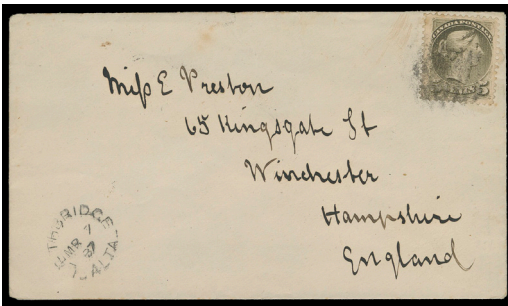 CANADA POSTAGE
5
Miss E Preston
65 Kingsgate St
Winchester
Hampshire
England
THBRIDGE
MR 7
87
ALTA